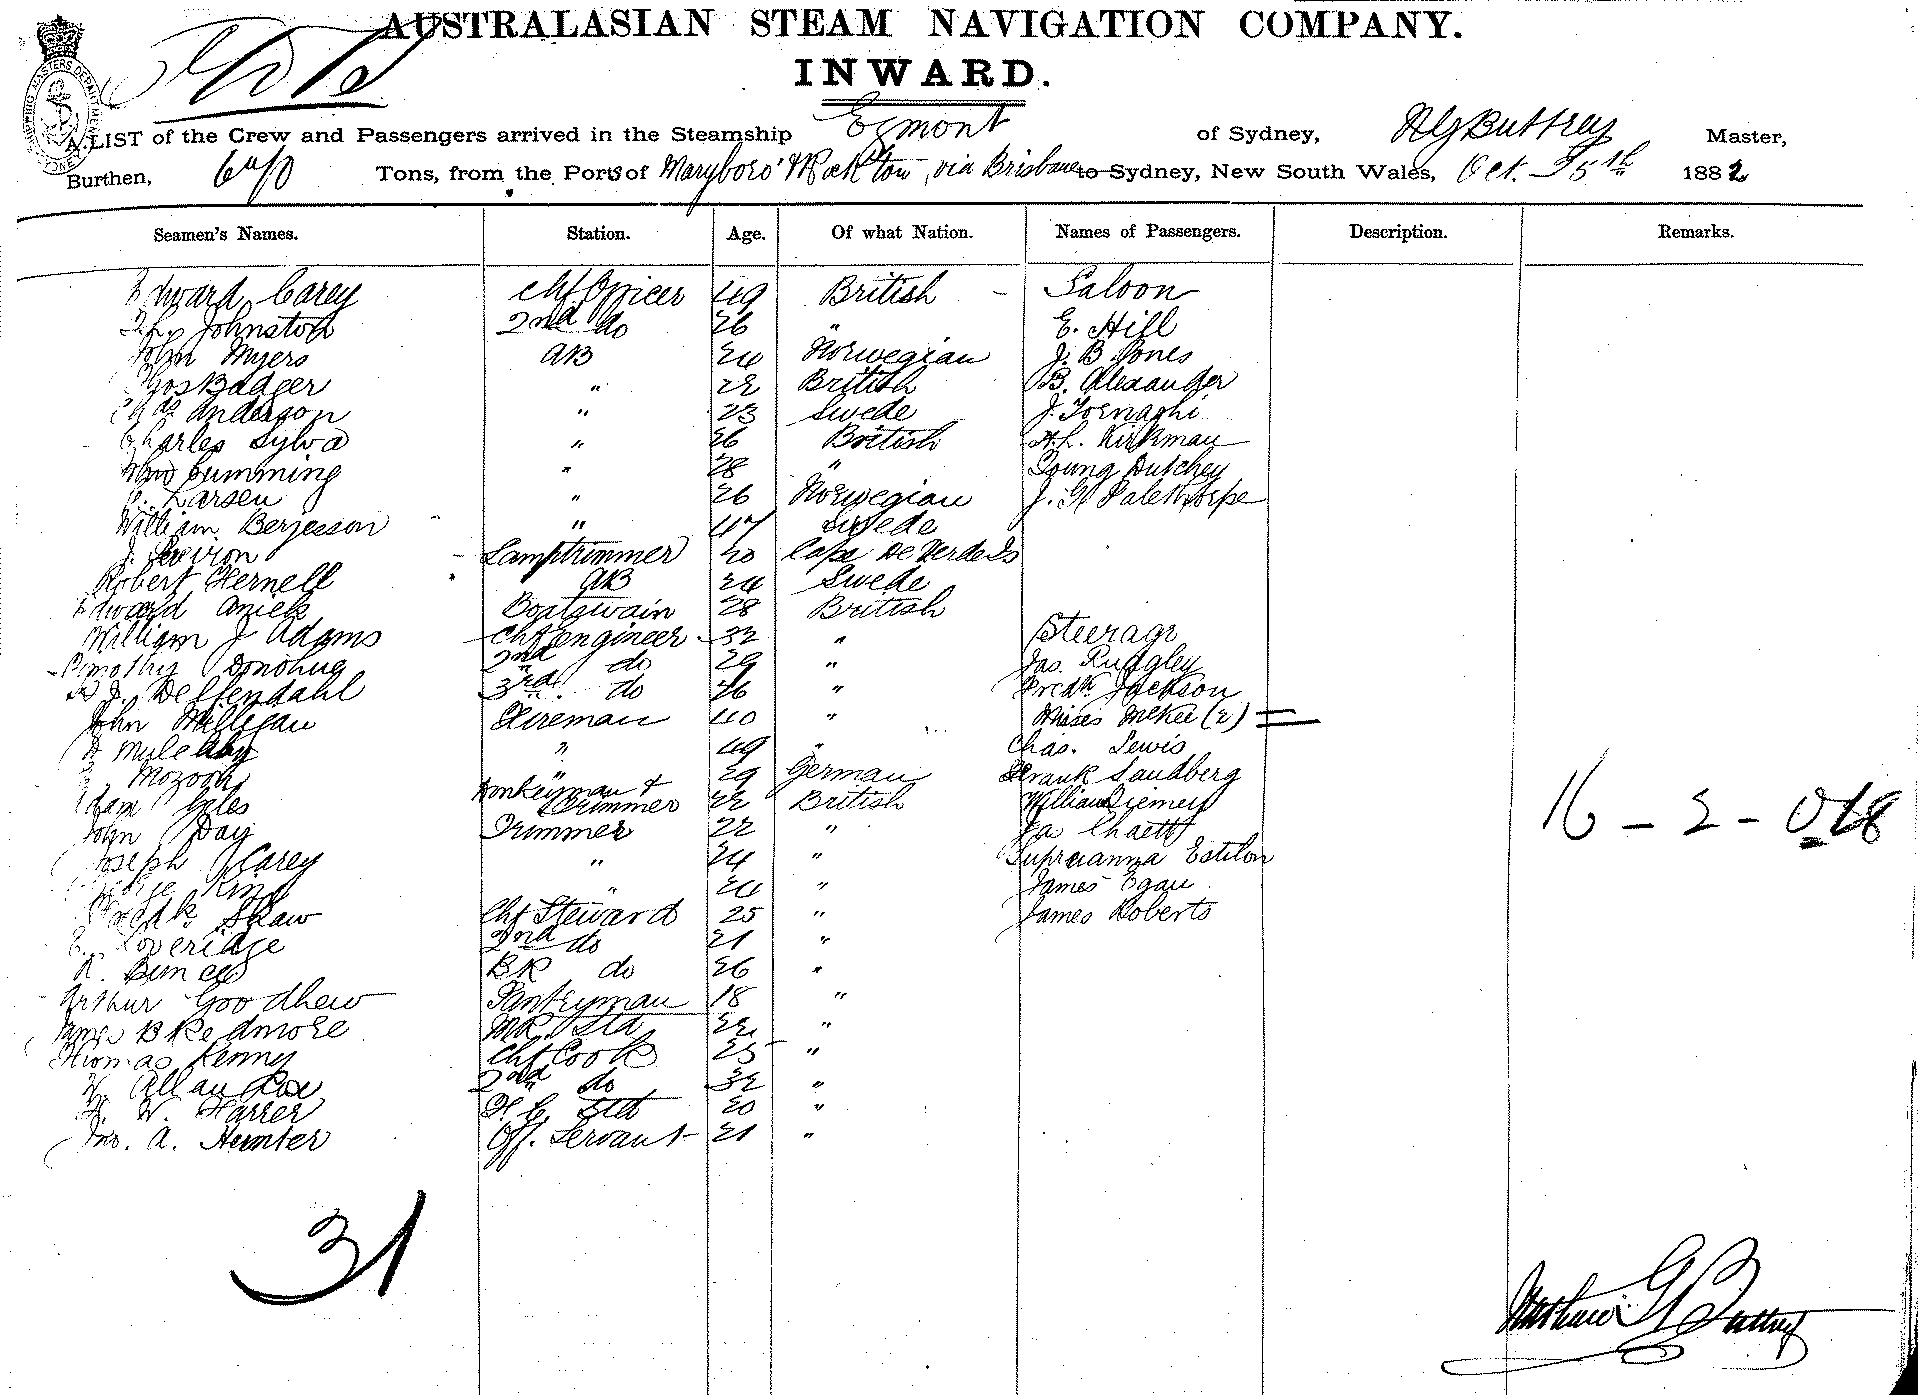 AUSTRALASIAN STEAM NAVIGATION COMPANY.
INWARD.
A LIST of the Crew and Passengers arrived in the Steamship Egmont of Sydney, N G Buttrey Master,
Burthen, Tons, from the Ports of Maryboro' & Rock'ton, via Brisbane to Sydney, New South Wales, Oct. 15th 1882
Seamen's Names. Station. Age. Of what Nation. Names of Passengers. Description. Remarks.
Edward Carey Chf Officer 49 British Saloon
Johnston 2nd do 26 " E. Hill
John Myers AB 24 Norwegian J. B Jones
Thos Badger " 22 British B. Alexander
Chas Anderson " 23 Swede J. Tornaghi
Charles Sylva " 26 British A. L. Kirkman
Wm Cumming " 28 " Young Dutchey
Larsen " 26 Norwegian J. H Palethorpe
William Berjesson " 47 Swede
J. Lamptrimmer 20 Cape De Verde Is
Robert Fernell AB 24 Swede
Edward Amies Boatswain 28 British
William J Adams Chf Engineer 32 " Steerage
Timothy Donohue 2nd do 29 " Jas. Rudgley
J. Deffendahl 3rd do 26 " Fredk Jackson
John Milligan Fireman 40 " Misses McKee (2)
Mulcahy " 49 " Chas. Lewis
Mozoon " 29 German Frank Sandberg
Giles Donkeyman & Trimmer 22 British William Siemen
John Day Trimmer 22 " Jas Chaett
Joseph Carey " 24 " Estilon
George King " 24 " James Egan
Fredk Shaw Chf Steward 25 " James Roberts
E. Loveridge 2nd do 21 "
A. Bunce BK do 26 "
Arthur Goodhew Pantryman 18 "
James B Redmore MR. Std 22 "
Thomas Kenny Chf Cook 25 "
W. Allan 2nd do 32 "
W. Farrer F. C. Std 20 "
Jno. A. Hunter Off. Servant 21 "
16 - 2 - 0
31
Nathan G Buttrey